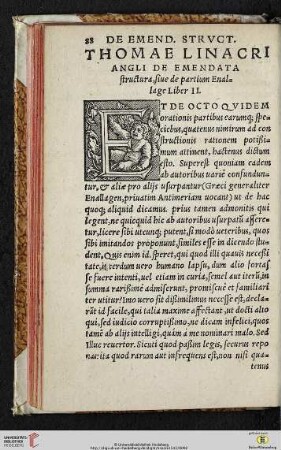 88 DE EMEND. STRVCT.
THOMAE LINACRI
ANGLI DE EMENDATA
structura, siue de partium Enal-
lage Liber II.
ET DE OCTO QVIDEM
orationis partibus earumq; spe-
ciebus, quatenus nimirum ad con
structionis rationem potissi-
mum attinent, hactenus dictum
esto. Superest quoniam eædem
ab autoribus uariè confundun-
tur, & aliæ pro alijs usurpantur (Græci generaliter
Enallagen, priuatim Antimeriam uocant) ut de hac
quoq; aliquid dicamus. prius tamen admonitis qui
legent, ne quicquid hic ab autoribus usurpari assere-
tur, licere sibi utcunq; putent, si modò ueteribus, quos
sibi imitandos proponunt, similes esse in dicendo stu-
dent. Quis enim id speret, quod illi quauis necessi
tate, interdum uero humano lapsu, dum alio fortas
se fuere intenti, uel etiam in cura, semel aut iterū, in
summa rarißimè admiserunt, promiscuè et familiari
ter utitur? Imo uero sit dißimillimus necesse est, decla-
rāt id facile, qui talia maxime affectant, ut docti alto
qui, sed iudicio corruptißimo, ne dicam infelici, quos
tamē ab alijs intelligi, quim a me nominari malo. Sed
Illuc reuertor. Sicuti quod paßim legis, securus repo
nas: ita quod rarum aut infrequens est, non nisi qua-
tenus
UNIVERSITÄTS-
BIBLIOTHEK
HEIDELBERG
© Universitätsbibliothek Heidelberg